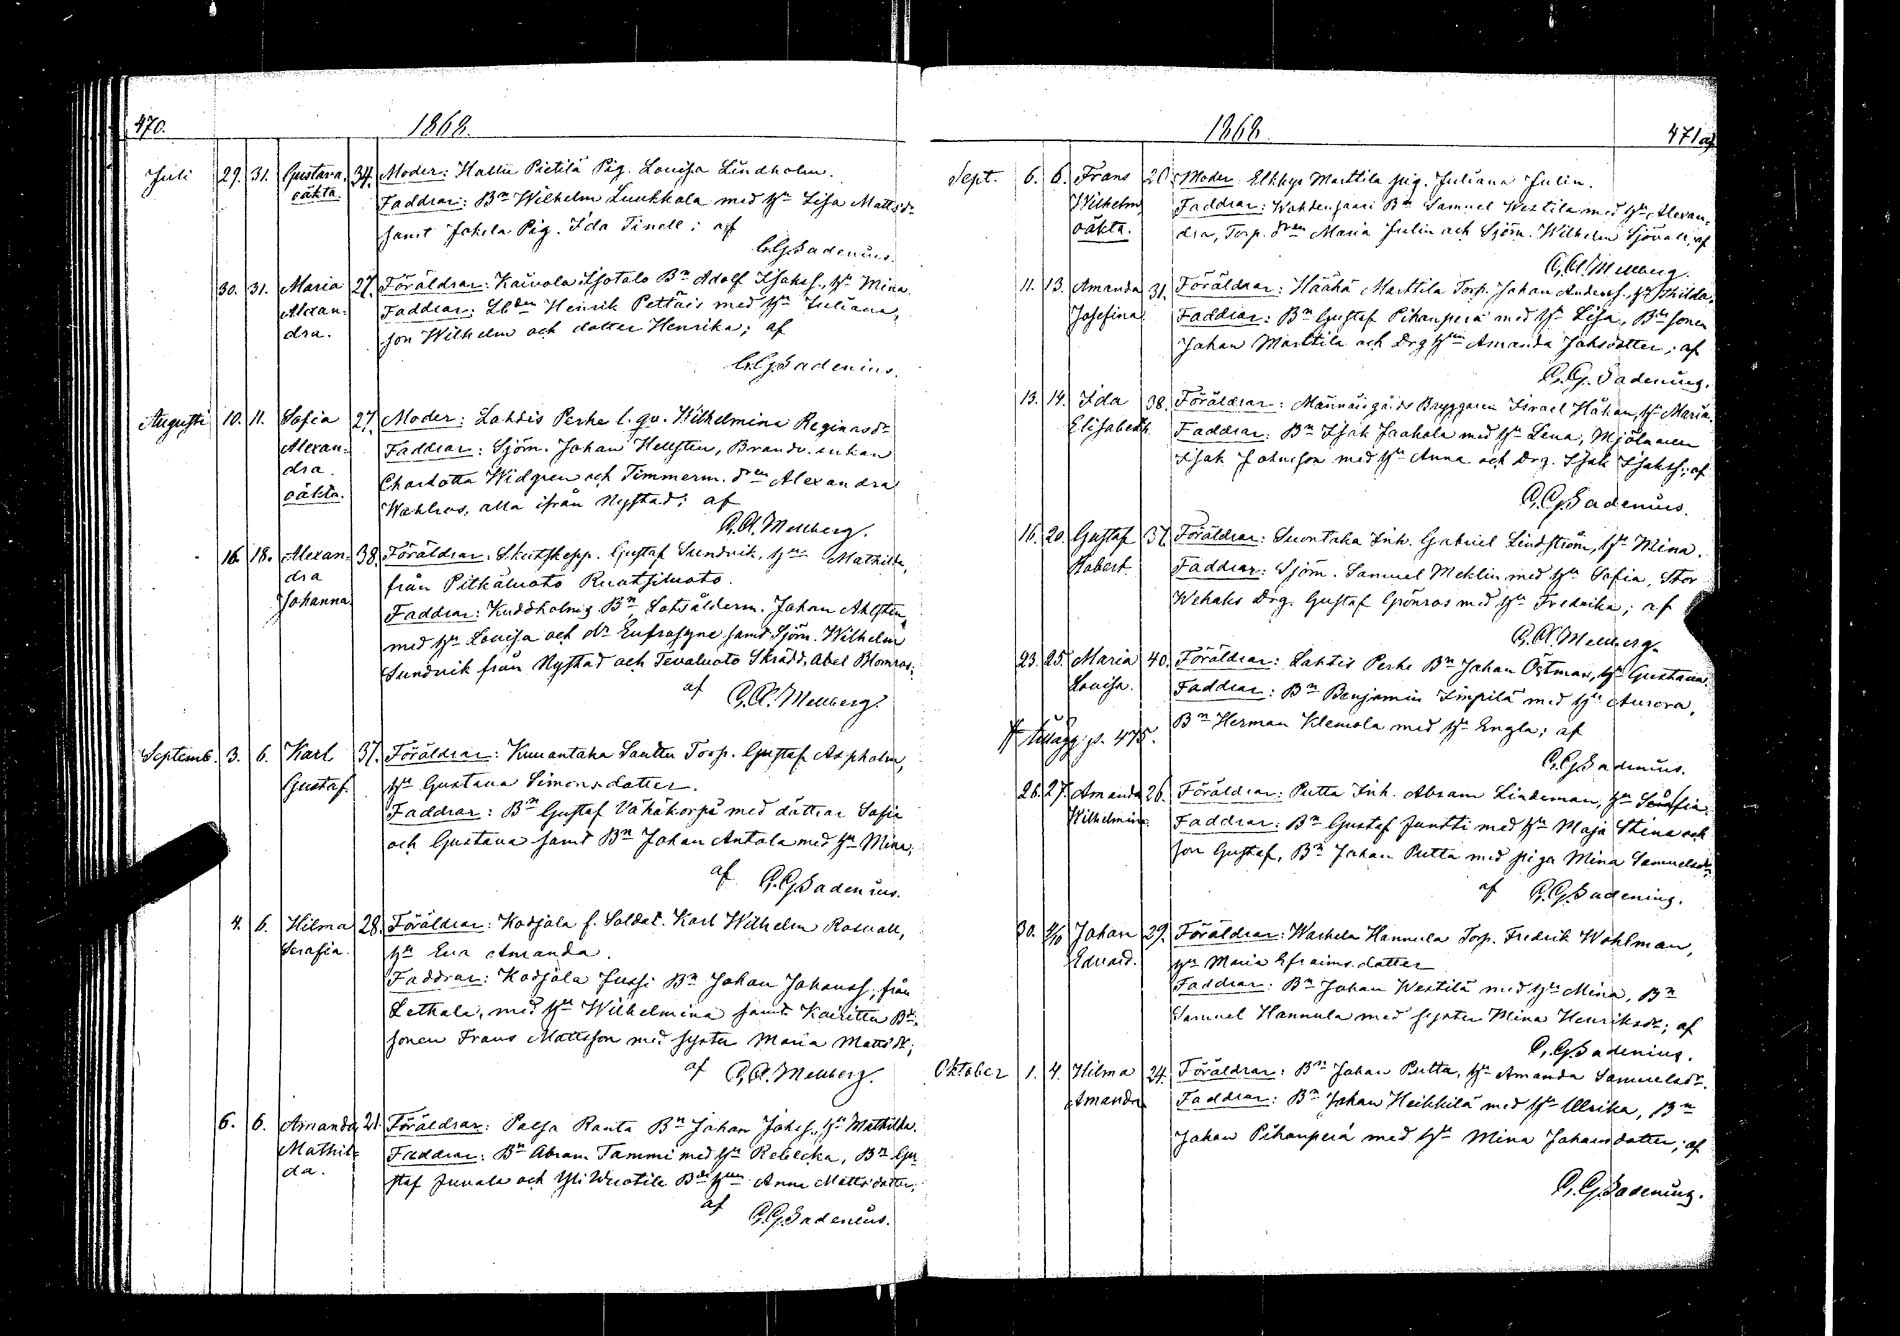 470. 1868.
Juli 29. 31. Gustava, 34. Moder: Hallu Pietilä Pig. Lovisa Lindholm.
oäkta. Faddrar: Bn Wilhelm Luukkala med hu Lisa Mattsdr
samt Jakela Pig. Ida Tinell; af
C.G. Sadenius.
30. 31. Maria 27. Föräldrar: Kaivola Isotalo Bn Adolf Isakss., hu Mina.
Alexan- Faddrar: Lbden Henrik Pettäis med hu Juliana,
dra. son Wilhelm och dotter Henrika; af
C.G. Sadenius.
Augusti 10. 11. Sofia 27. Moder: Lahdis Perhe l. qv. Wilhelmina Reginasdr
Alexan- Faddrar: Sjöm. Johan Hellsten, Brandv. enkan
dra. Charlotta Widgren och Timmerm. dren Alexandra
oäkta. Wahlros, alla ifrån Nystad; af
G.A. Mellberg.
16. 18. Alexan- 38. Föräldrar: Skutskepp. Gustaf Sundvik, hun Mathilda,
dra från Pitkäluoto Ruotsiluoto.
Johanna Faddrar: Kuddholmig Bn, Lotsålderm. Johan Ahlsten
med hu Lovisa och dr Eufrosyne samt Sjöm. Wilhelm
Sundvik från Nystad och Tevaluoto Skrädd. Abel Blomros;
af G.A. Mellberg.
Septemb. 3. 6. Karl 37. Föräldrar: Kuuantaka Santtu Torp. Gustaf Aspholm,
Gustaf. hu Gustava Simonsdotter.
Faddrar: Bn Gustaf Vähäkorpi med döttrar Sofia
och Gustava samt Bn Johan Antola med hu Mina;
af G.G. Sadenius.
4. 6. Hilma 28. Föräldrar: Kodjala f. Soldat. Karl Wilhelm Rosvall,
Serafia. hu Eva Amanda.
Faddrar: Kodjala Jussi Bn Johan Johanss. från
Lethala, med hu Wilhelmina samt Kairittu Bde-
sonen Frans Mattsson med syster Maria Mattsdr;
af G.A. Mellberg.
6. 6. Amanda 21. Föräldrar: Palsa Ranta Bn Johan Jakss., hu Mathilda.
Mathil- Faddrar: Bn Abram Tammi med hu Rebecka, Bn Gu-
da. staf Juvala och Yli Wuotila Bde hun Anna Mattsdotter;
af
G.G. Sadenius.
1868. 471 a).
Sept. 6. 6. Frans 20. Moder: Elkkys Marttila pig. Juliana Julin.
Wilhelm, Faddrar: Wohdensaari Bn Samuel Westilä med hu Alexan-
oäkta. dra, Torp. dren Maria Julin och Sjöm. Wilhelm Sjövall; af
G.A. Mellberg.
11. 13. Amanda 31. Föräldrar: Häähä Marttila Torp. Johan Anderss., hu Mathilda.
Josefina Faddrar: Bn Gustaf Pihanperä med hu Lisa, Bde sonen
Johan Marttila och Drg hun Amanda Jaksdotter; af
G.G. Sadenius.
13. 14. Ida 38. Föräldrar: Männäisgårds Bryggaren Israel Håkan, hu Maria.
Elisabeth. Faddrar: Bn Isak Jaakola med hu Lena, Mjölnaren
Isak Johnsson med hu Anna och Drg. Isak Isakss.; af
G.G. Sadenius.
16. 20. Gustaf 37. Föräldrar: Suontaka Inh. Gabriel Lindström, hu Mina.
Robert. Faddrar: Sjöm. Samuel Meklin med hu Sofia, Stor
Wehaks Drg. Gustaf Grönroos med hu Fredrika; af
G.A. Mellberg.
23. 25. Maria 40. Föräldrar: Lahdis Perhe Bn Johan Östman, hu Gustava.
Lovisa. Faddrar: Bn Benjamin Simpilä med hu Aurora,
Bn Herman Klemola med hu Engla; af
# tillägg p. 475.
G.G. Sadenius.
26. 27. Amanda 26. Föräldrar: Putta Inh. Abram Lindeman, hu Serafia.
Wilhelmina Faddrar: Bn Gustaf Juntti med hu Maja Stina och
son Gustaf, Bn Johan Putta med piga Mina Samuelsdr;
af G.G. Sadenius.
30. 4/10 Johan 29. Föräldrar: Warhela Hannula Torp. Fredrik Wahlman,
Edvard. hu Maria Efraimsdotter
Faddrar: Bn Johan Westilä med hu Mina, Bn
Samuel Hannula med syster Mina Henriksdr; af
G.G. Sadenius.
Oktober 1. 4. Hilma 24. Föräldrar: Bn Johan Putta, hu Amanda Samuelsdr.
Amanda Faddrar: Bn Johan Heikkilä med hu Ulrika, Bn
Johan Pihanperä med hu Mina Johansdotter; af
G.G. Sadenius.